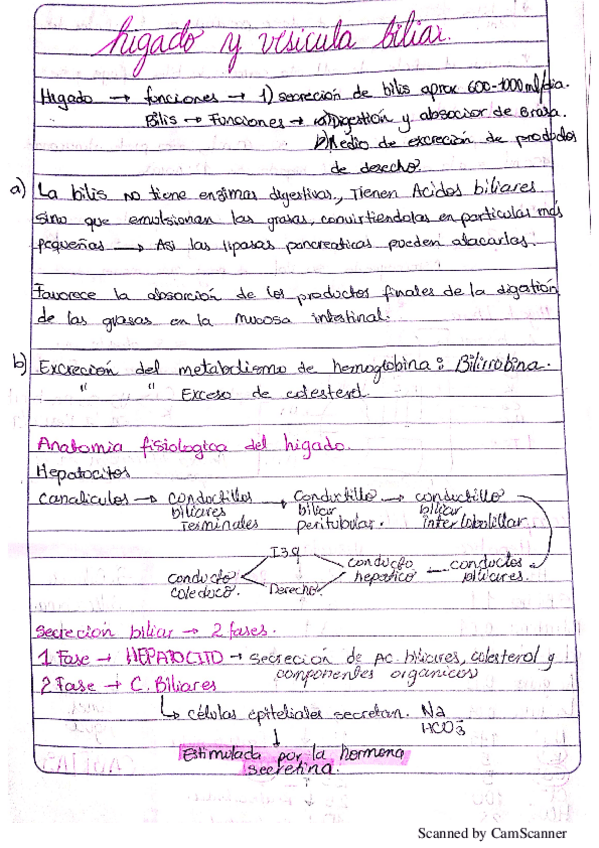 higado y vesicula biliar.
Higado → funciones → 1) secreción de bilis aprox 600-1000ml/dia.
Bilis → Funciones → a) Digestión y absocion de Grasa.
b) Medio de excreción de productos
de desecho.
a) La bilis no tiene enzimas digestivas, Tienen Acidos biliares
sino que emulsionan las grasas, convirtiendolas en particulas mas
pequeñas → Asi las lipasas pancreaticas pueden atacarlas.
Favorece la absorción de los productos finales de la digation
de las grasas en la mucosa intestinal.
b) Excreción del metabolismo de hemoglobina: Bilirrobina.
" " Exceso de colesterol.
Anatomia fisiologica del higado.
Hepatocitos
canaliculos → conductillos biliares terminales → Conductillo biliar peritubular. → conductillo biliar interlobolillar
conductos biliares. — conducto hepatico — Izq Derecho — conducto coleduco.
Secrecion biliar → 2 fases.
1 Fase → HEPATOCITO → secreción de Ac. biliares, colesterol y
componentes organicos
2 Fase → C. Biliares
↳ células epiteliales secretan. Na
HCO3
↓
Estimulada por la hormona
secretina.
Scanned by CamScanner